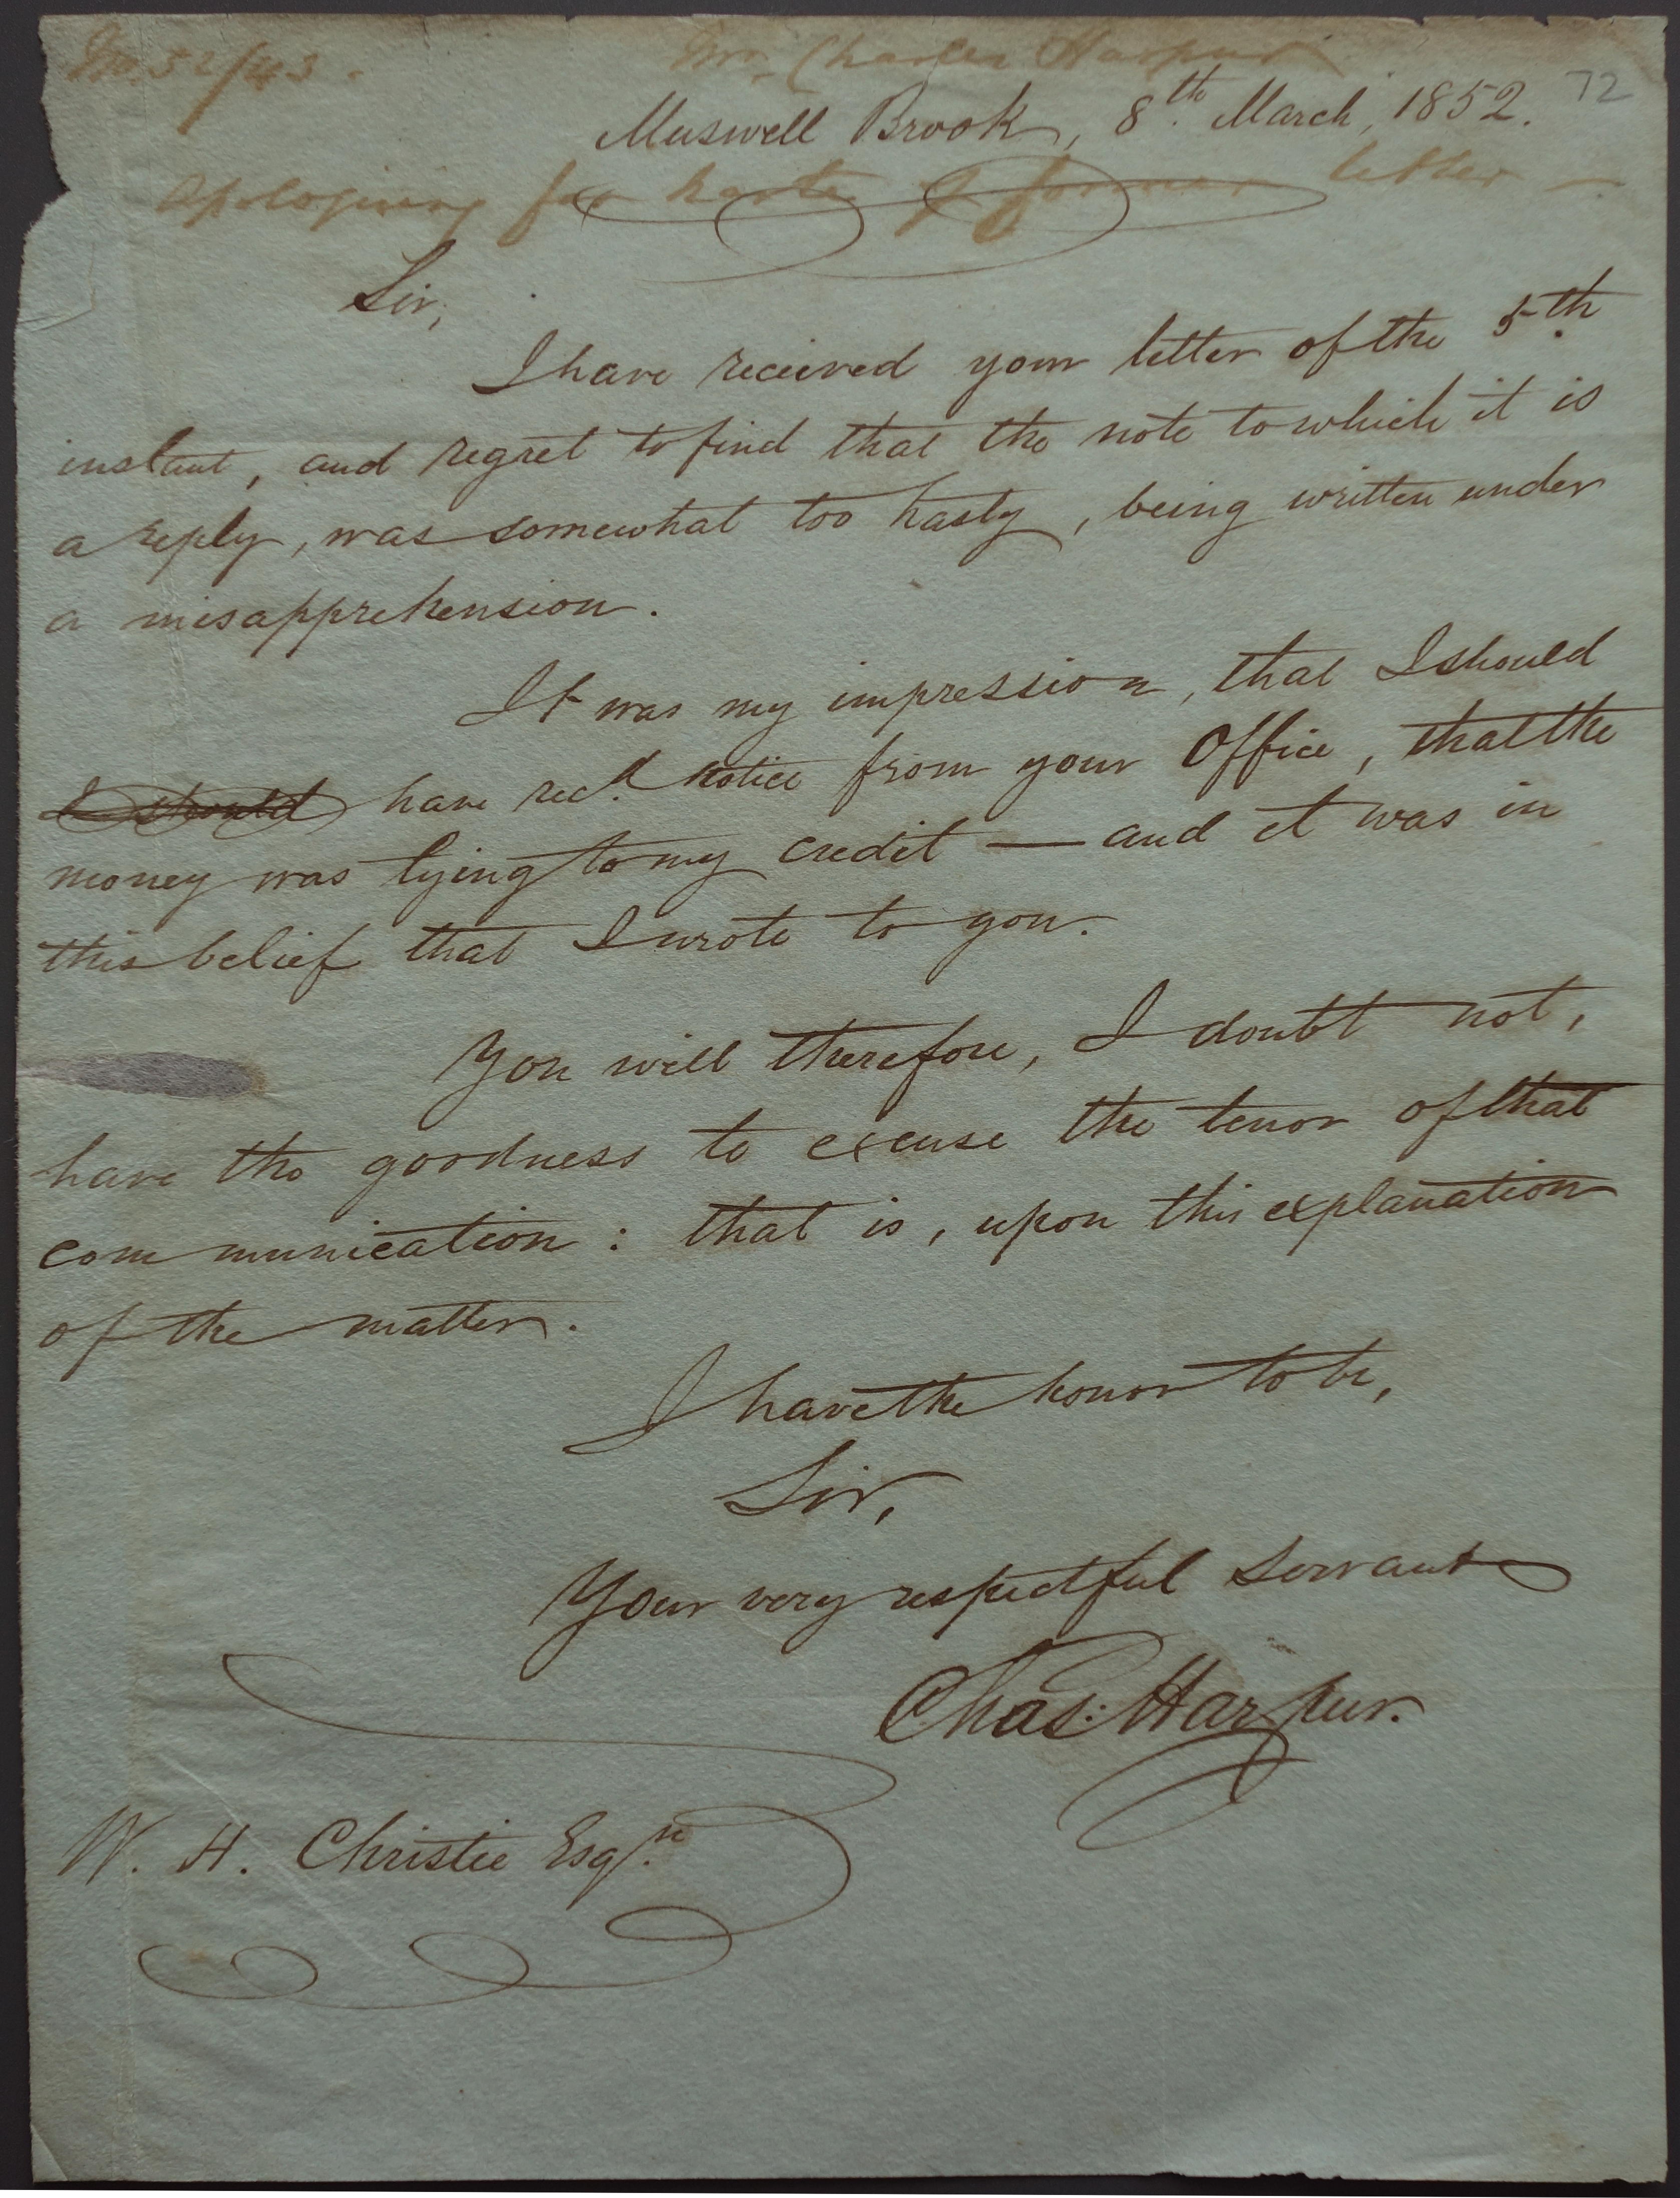 No. 52/43. Mr. Charles Harpur
72
Muswell Brook, 8th. March, 1852.
Apologising for haste of former letter —
Sir,
I have received your letter of the 5th.
instant, and regret to find that the note to which it is
a reply, was somewhat too hasty, being written under
a misapprehension.
It was my impression, that I should
I should have recd. notice from your Office, that the
money was lying to my credit — and it was in
this belief that I wrote to you.
You will therefore, I doubt not,
have the goodness to excuse the tenor of that
communication: that is, upon this explanation
of the matter.
I have the honor to be,
Sir,
Your very respectful Servant
Chas: Harpur.
W. H. Christie Esqre.